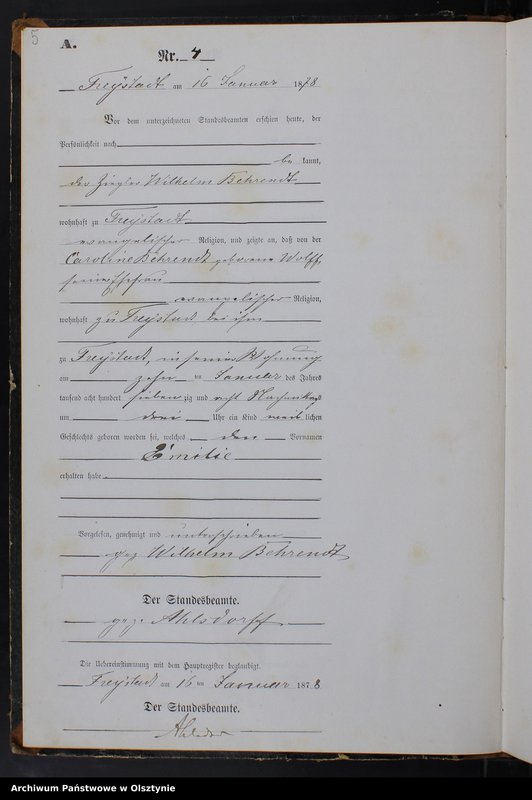 5
A.
Nr. 4
Freÿstadt am 16 Januar 1878
Vor dem unterzeichneten Standesbeamten erschien heute, der
Persönlichkeit nach
be kannt,
der Ziegler Wilhelm Behrendt
wohnhaft zu Freÿstadt
evangelischer Religion, und zeigte an, daß von der
Caroline Behrendt geborene Wolff
seiner Ehefrau
evangelischer Religion,
wohnhaft zu Freÿstadt bei ihm
zu Freÿstadt, in seiner Wohnung
am zehn ten Januar des Jahres
tausend acht hundert sieben zig und acht Nachmittags
um drei Uhr ein Kind weib lichen
Geschlechts geboren worden sei, welches den Vornamen
Emilie
erhalten habe
Vorgelesen, genehmigt und unterschrieben
gez. Wilhelm Behrendt
Der Standesbeamte.
gez. Ahlsdorff
Die Uebereinstimmung mit dem Hauptregister beglaubigt.
Freÿstadt am 16 ten Januar 1878
Der Standesbeamte.
Archiwum Państwowe w Olsztynie